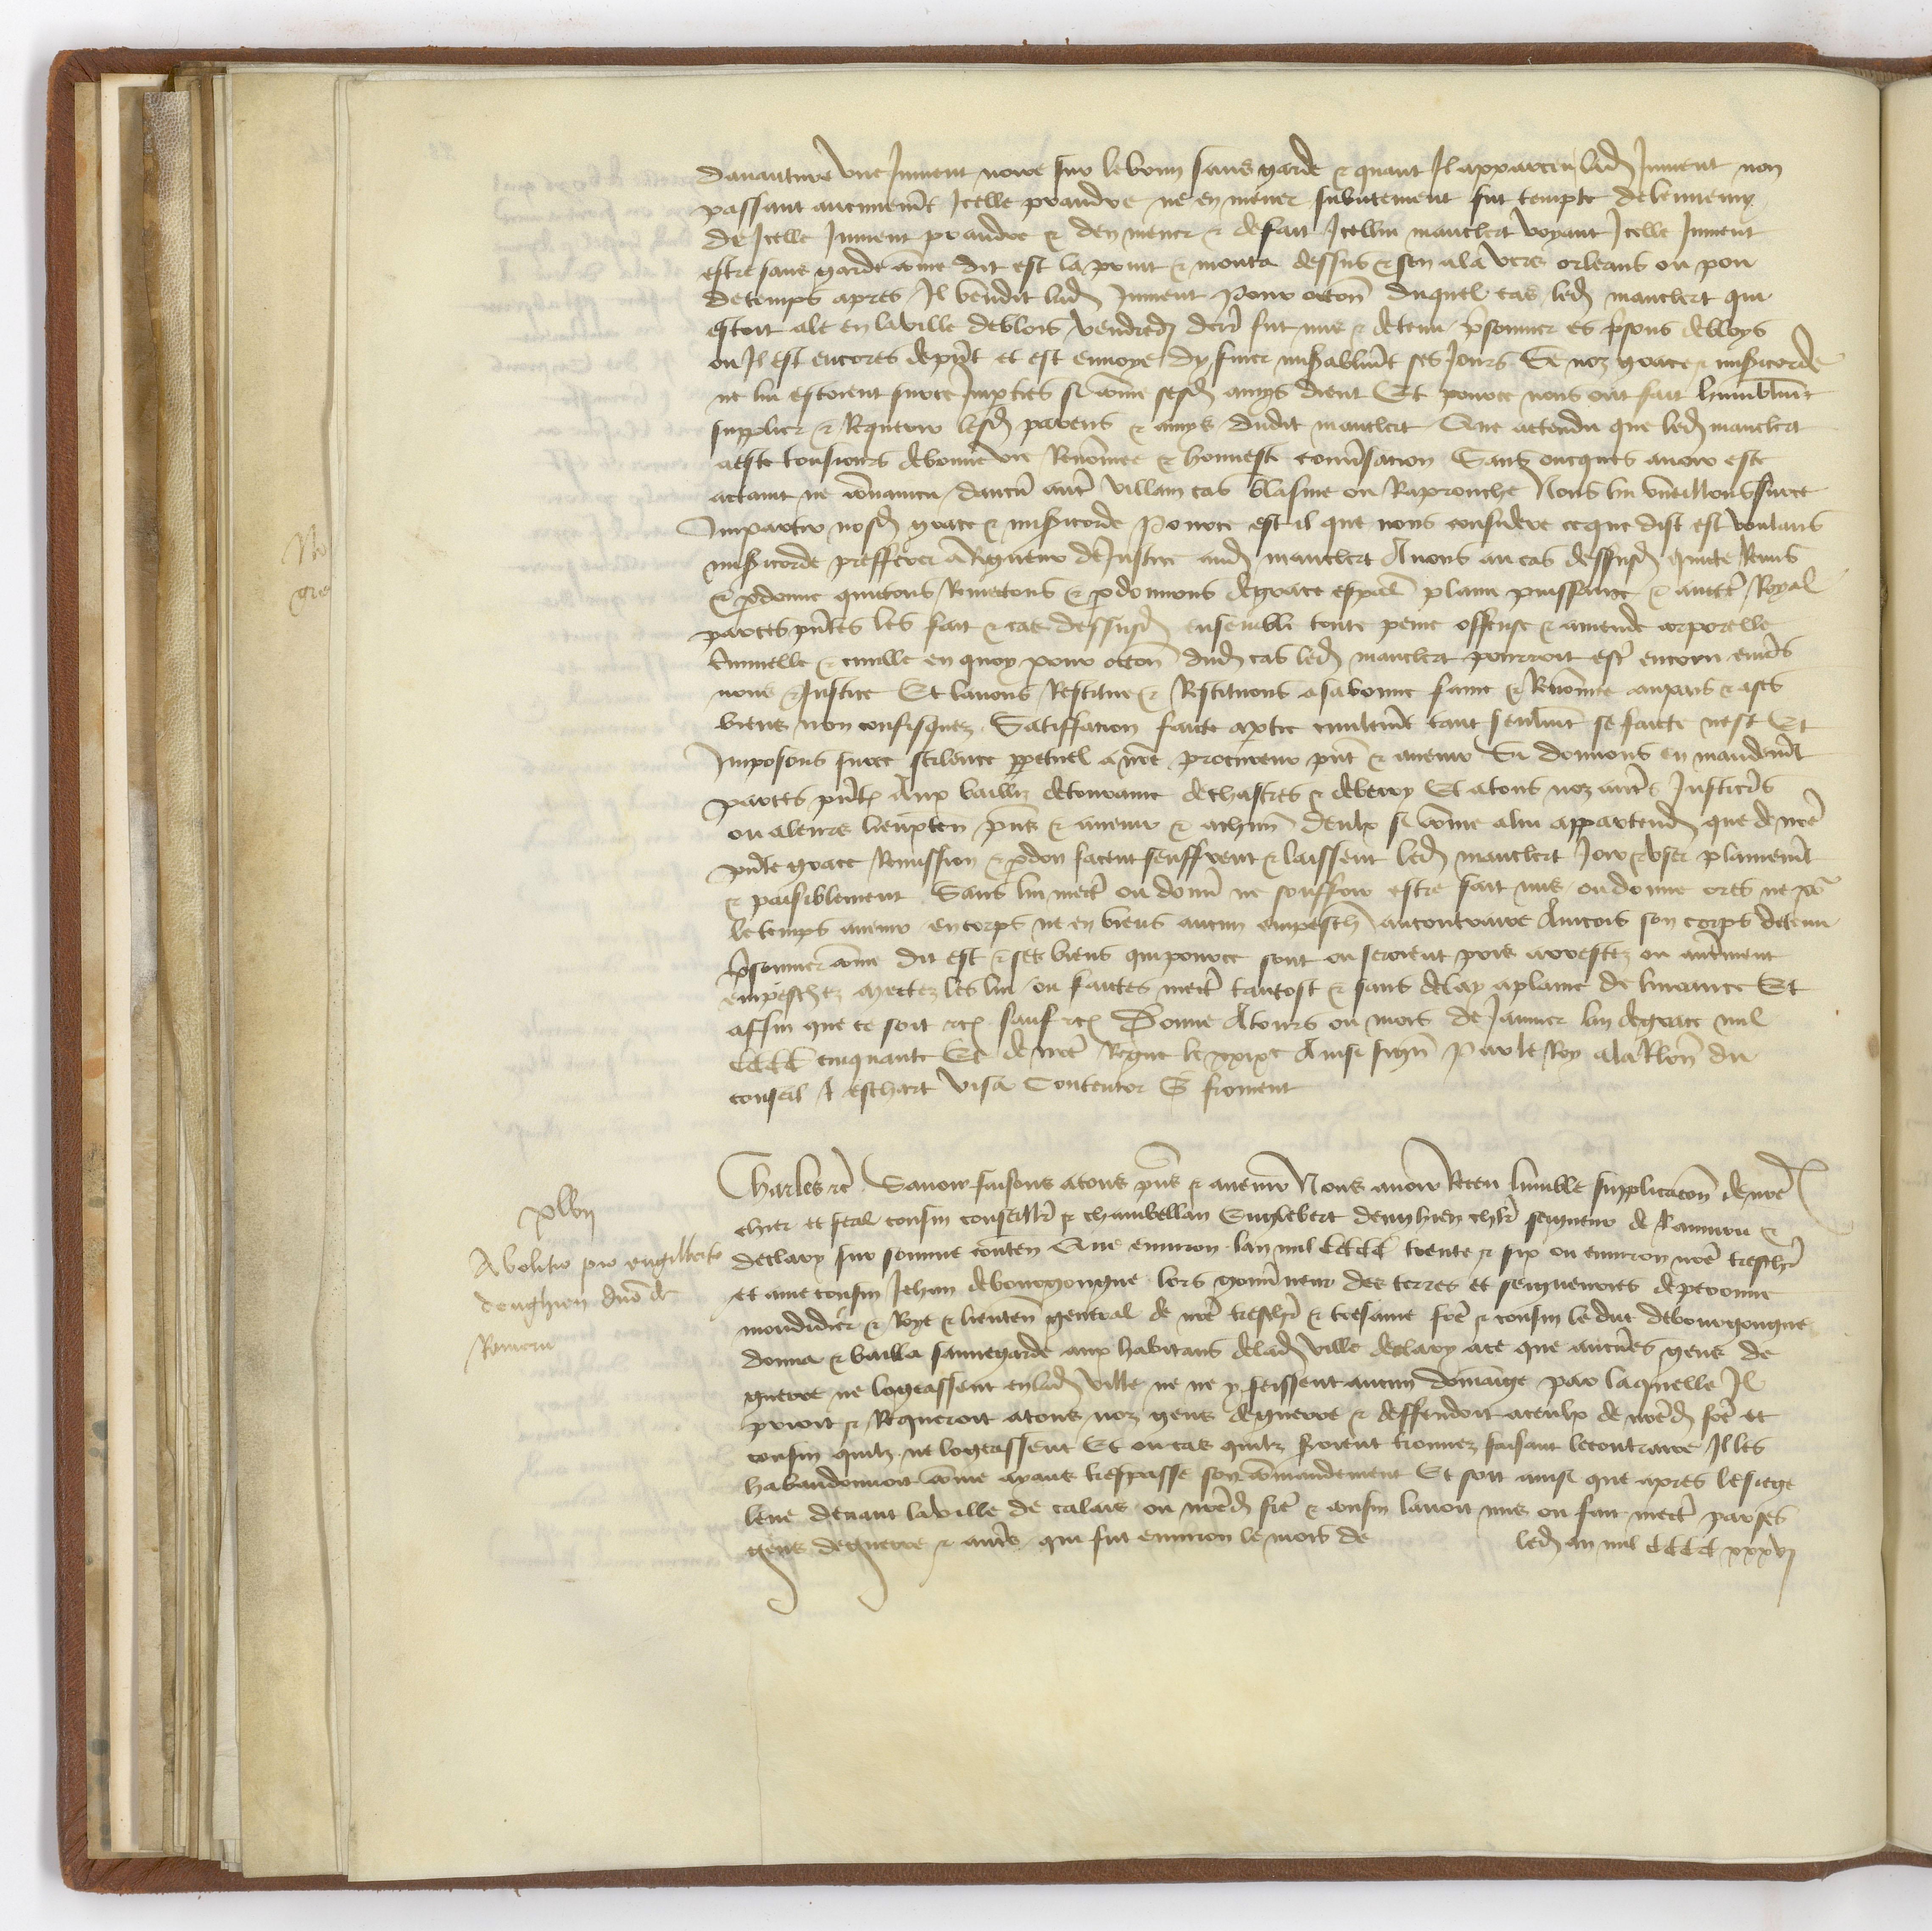 davanture une jument noire sur le bout sans garde & quant Il apparceu lad jument non
passant aucunemt Icelle prandre ne enmener subitement fut tempte de lennemy
de Icelle jument prandre & den mener & de fait Icellui mauclert voyant Icelle jument
estre sans garde come dit est la print & monta dessus & sen ala vers orleans ou pou
de temps apres Il vendit lad jument Pour occon duquel cas led mauclert qui
estoit ale en la ville de blois vendredi derr fut mis & detenu prisonnier es prisons de bloys
ou Il est encores de pnt et est en voye dy finer misablemt ses jours Se noz grace & misicorde
ne lui estoient sur ce Imparties si come sesd amys dient Et pour ce nous ont fait humblemt
supplier & Requerir lesd parens & amys dudit mauclert Que actendu que led mauclert
a este tousiours de bonne vie Renommee & honneste conversacion Sans oncques avoir este
actaint ne convaincu daucun autre villain cas blasme ou Reprouche Nous lui vueillons sur ce
Impartir nosd grace & misicorde Pour ce est il que nous considere ce que dist est voulans
misicorde prefferer a Rigueur de justice aud mauclert Avons ou cas dessusd quicte Remis
& pdonne quictons Remectons & pdonnons de grace espal plaine puissance & auctte Royal
par ces pntes les fait & cas dessusd ensemble toute peine offense & amende corporelle
criminelle & civille en quoy pour occon dud cas led mauclert pourroit estre encouru envers
nous & justice Et lavons Restitue & Restituons a sa bonne fame & Renommee au pais & a ses
biens non confisquez Satiffacion faicte a ptie civilemt tant seulemt se faicte nest Et
Imposons sur ce scilence ppetuel a nre procureur pnt & avenir Si donnons en mandemt
par ces pntes Aux bailliz de touraine de chartres & de berry Et a tous noz autres Justiciers
ou a leurs lieuxten pns & avenir & a chun deulx si come a lui appartendra que de nre
pnte grace Remission & pdon facent seuffrent & laissent led mauclert joir & user plainemt
& paisiblement Sans lui mectre ou donner ne souffrir estre fait mis ou donne ores ne pour
le temps avenir en corps ne en biens aucun empesch au contraire Aincois son corps detenu
prisonnier come dit est & ses biens qui pour ce sont ou seroient pris arrestez ou autrement
empeschez mectez les lui ou faictes mectre tantost & sans delay a plaine delivrance Et
affin que ce soit etc sauf etc Donne A tours ou mois de janvier lan de grace mil
CCCC cinquante Et de nre Regne le xxixe Ainsi signe Par le Roy a la Relon du
conseil A eschart Visa Contentor G froment
xlvij
Abolitio pro engilberto
denghien dno de
Rameru
Charles etc Savoir faisons a tous pns & avenir Nous avoir Receu lumble supplicacon de nre
chier et feal cousin conseiller & chambellan Englebert denghien chlr seigneur de Rameru &
declary sur somme conten Que environ lan mil CCCC trente & six ou environ nre treschr
et ame cousin Jehan de bourgongne lors gouverneur des terres et seigneuries de peronne
mondidier & Roye & lieuten general de nre treschr & tresame fre & cousin le duc de bourgongne
donna & bailla sauvegarde aux habitans de lad ville declary a ce que aucunes gens de
guerre ne logeassent en lad ville ne ne y feissent aucun dommaige par laquelle Il
prioit & Requeroit a tous noz gens de guerre & deffendoit a ceulx de nred fre et
cousin quilz ne logeassent Et ou cas quilz seroient trouvez faisant le contraire Il les
habandonnoit come ayans trespasse son commandement Et soit ainsi que apres le siege
leve devant la ville de calais ou nred fre & cousin lavoit mis ou fait mectre par ses
gens de guerre & autres qui fut environ le mois de led an mil CCCC xxxvj